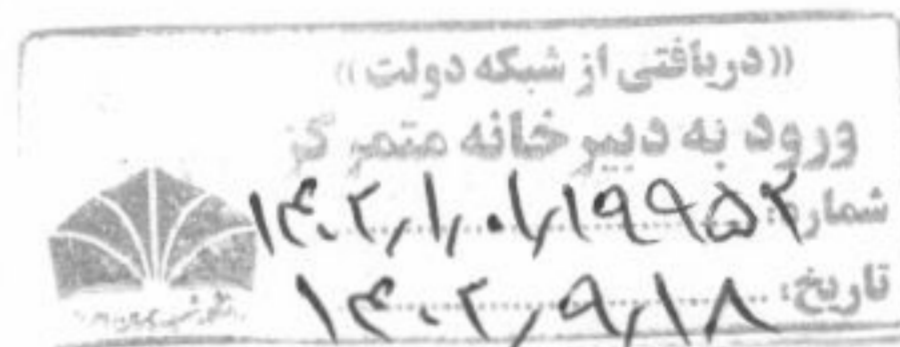 ((دریافتی از شبکه دولت))
ورود به دبیرخانه متمرکز
شماره: ۱۴۰۲/۱/۰۱/۱۹۹۵۲
تاریخ: ۱۴۰۲/۹/۱۸